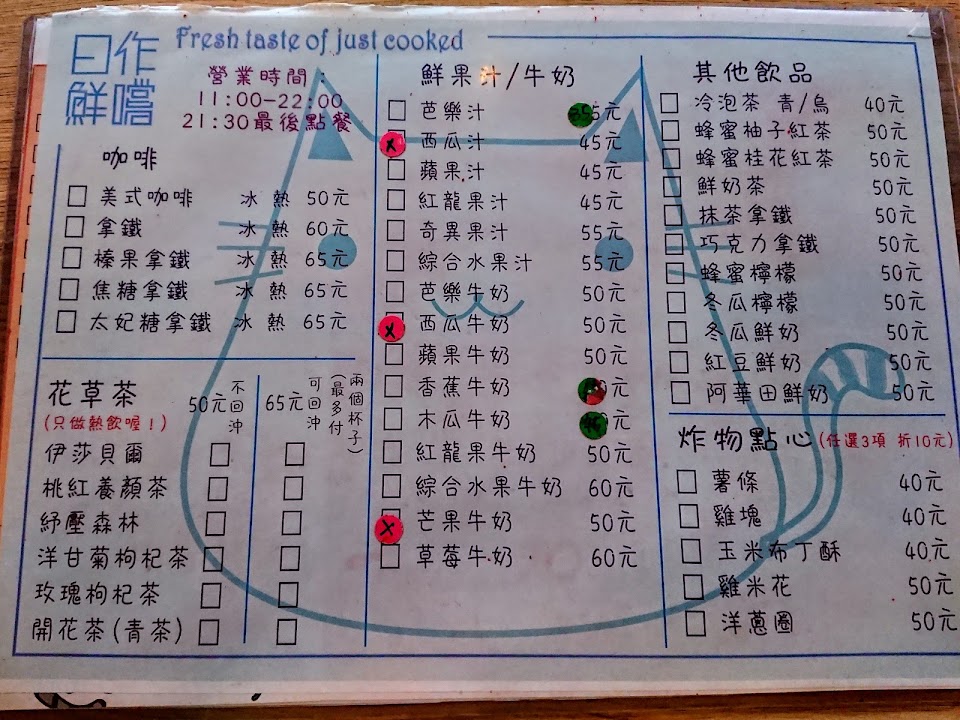 日作
鮮嚐
Fresh taste of just cooked
營業時間:
11:00-22:00
21:30最後點餐
咖啡
美式咖啡 冰 熱 50元
拿鐵 冰 熱 60元
榛果拿鐵 冰 熱 65元
焦糖拿鐵 冰 熱 65元
太妃糖拿鐵 冰 熱 65元
花草茶
(只做熱飲喔!)
50元 不回沖
65元 可回沖
(最多付
兩個杯子)
伊莎貝爾
桃紅養顏茶
紓壓森林
洋甘菊枸杞茶
玫瑰枸杞茶
開花茶(青茶)
鮮果汁/牛奶
芭樂汁 55元
X 西瓜汁 45元
蘋果汁 45元
紅龍果汁 45元
奇異果汁 55元
綜合水果汁 55元
芭樂牛奶 50元
X 西瓜牛奶 50元
蘋果牛奶 50元
香蕉牛奶 元
木瓜牛奶 元
紅龍果牛奶 50元
綜合水果牛奶 60元
X 芒果牛奶 50元
草莓牛奶 60元
其他飲品
冷泡茶 青/烏 40元
蜂蜜柚子紅茶 50元
蜂蜜桂花紅茶 50元
鮮奶茶 50元
抹茶拿鐵 50元
巧克力拿鐵 50元
蜂蜜檸檬 50元
冬瓜檸檬 50元
冬瓜鮮奶 50元
紅豆鮮奶 50元
阿華田鮮奶 50元
炸物點心 (任選3項 折10元)
薯條 40元
雞塊 40元
玉米布丁酥 40元
雞米花 50元
洋蔥圈 50元